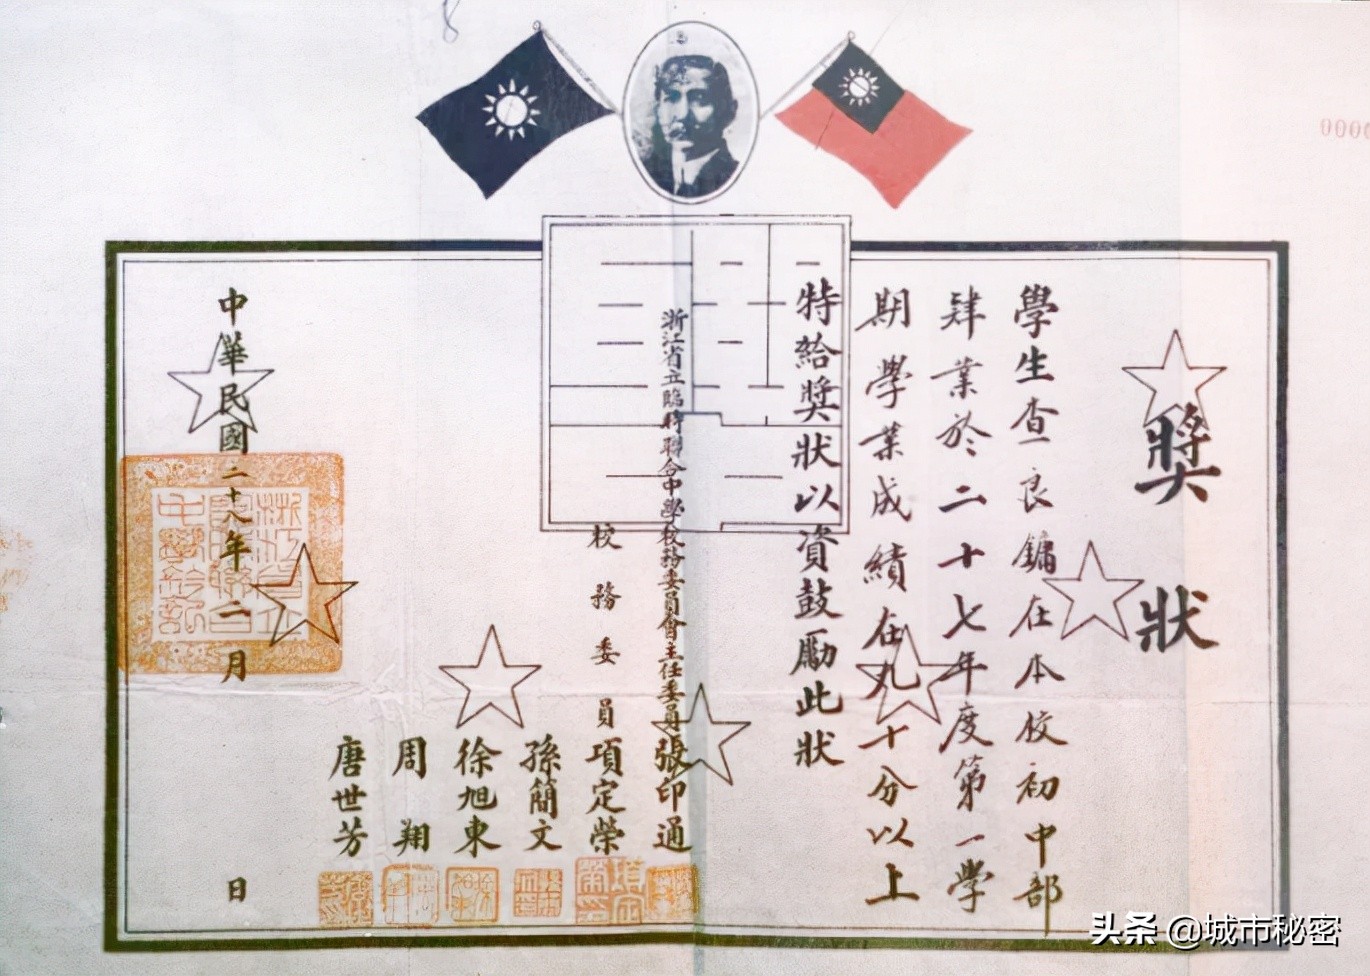 獎狀
學生查良鏞在本校初中部
肄業於二十七年度第一學
期學業成績在九十分以上
特給獎狀以資鼓勵此狀
浙江省立臨時聯合中學校務委員會主任委員張印通
校務委員項定榮
孫簡文
徐旭東
周翔
唐世芳
中華民國二十八年二月 日
头条 @城市秘密